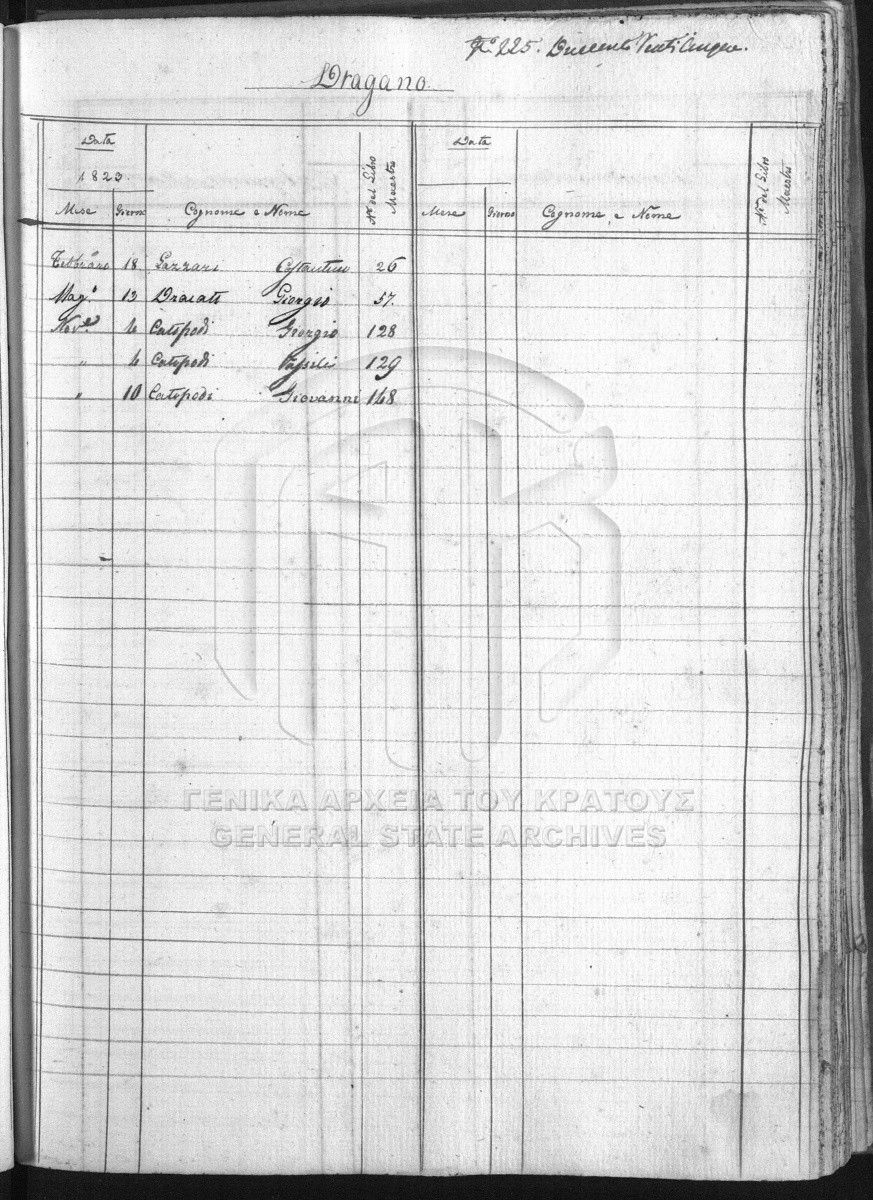 Nº 225. Duecento Venti Cinque.
Dragano.
Data
Data
1823.
Mese Giorno Cognome e Nome Nº del Libro Maestro
Mese Giorno Cognome e Nome Nº del Libro Maestro
Febbraro 18 Lazzari Costantino 26
Magº 12 Dracati Giorgio 57.
Novᵉ 6 Catopodi Giorgio 128
" 6 Catopodi Vassili 129
" 10 Catopodi Giovanni 148
ΓΕΝΙΚΑ ΑΡΧΕΙΑ ΤΟΥ ΚΡΑΤΟΥΣ
GENERAL STATE ARCHIVES